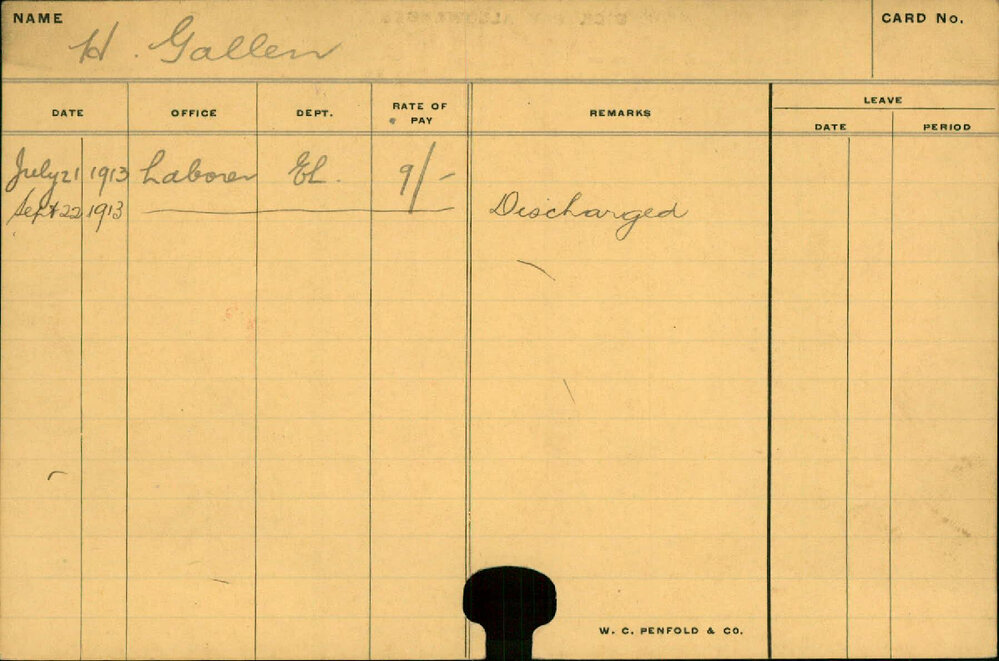 NAME H. Gallen CARD No.
DATE OFFICE DEPT. RATE OF PAY REMARKS LEAVE
DATE PERIOD
July 21 1913 Laborer EL. 9/-
Sept 22 1913 Discharged
W. C. PENFOLD & CO.